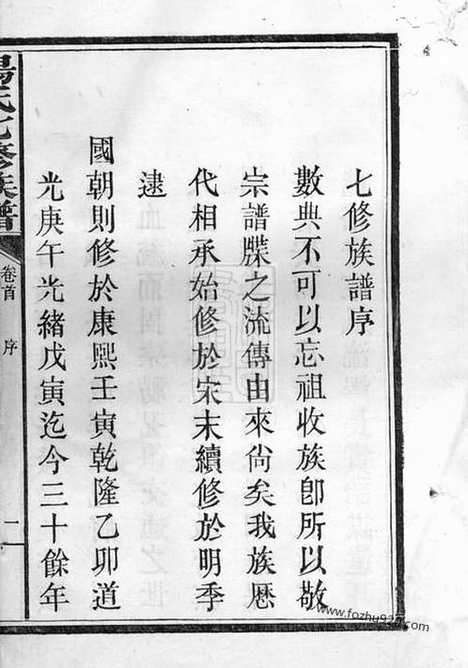 七修族譜序
數典不可以忘祖收族卽所以敬
宗譜牒之流傳由來尙矣我族歷
代相承始修於宋末續修於明季
逮
國朝則修於康熙壬寅乾隆乙卯道
光庚午光緒戊寅迄今三十餘年
楊氏七修族譜
卷首
序
二
www.fozhu920.com